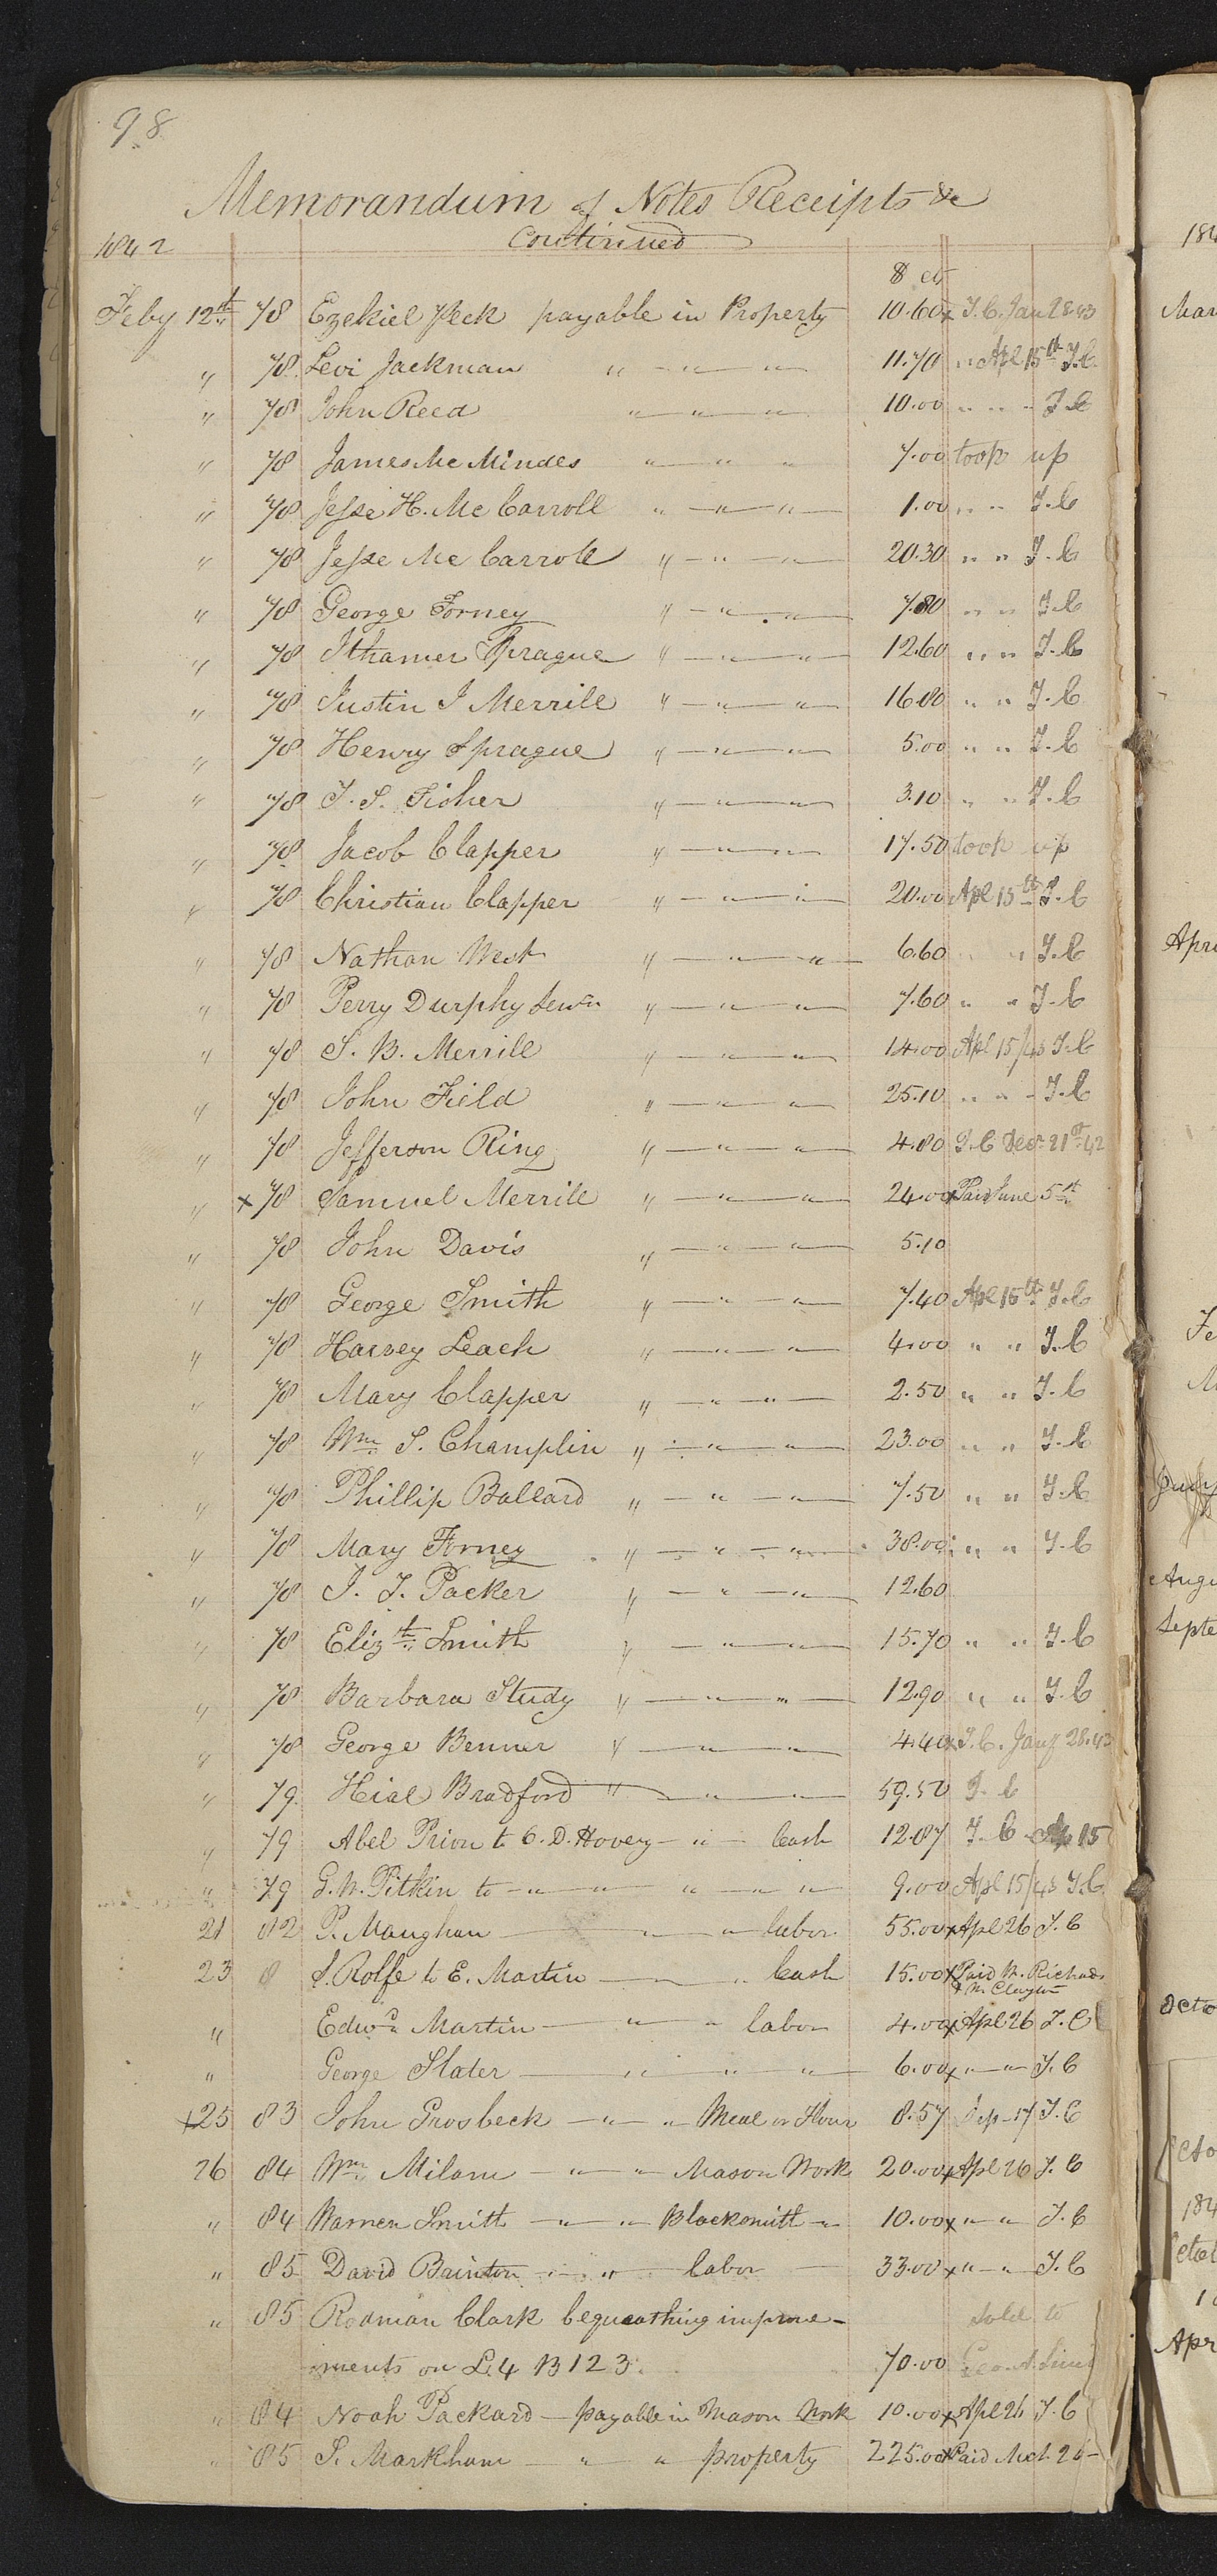 98
Memorandum of Notes Receipts &c
1842 Continued
$ ct
Feby 12th 78 Ezekiel Peck payable in Property 10.60 x T.C. Jan 28 43
" 78 Levi Jackman " — " — " 11.70 " Apl 15th T.C.
" 78 John Reed " — " — " 10.00 " " " T.C
" 78 James McMindes " — " " 7.00 took up
" 78 Jesse H. McCarroll " — " — " 1.00 " " T.C
" 78 Jesse McCarroll " — " — " 20.30 " " T.C
" 78 George Forney " — " — " 7.80 " " T.C
" 78 Ithamer Sprague " — " — " 12.60 " " T.C
" 78 Justin J Merrill " — " — " 16.80 " " T.C
" 78 Henry Sprague " — " — " 5.00 " " T.C
" 78 T. S. Fisher " — " — " 3.10 " " T.C
" 78 Jacob Clapper " — " — " 17.50 took up
" 78 Christian Clapper " — " — " 20.00 Apl 15th T.C
" 78 Nathan West " — " — " 6.60 " " T.C
" 78 Perry Durphy Senr " — " — " 7.60 " " T.C
" 78 S. B. Merrill " — " — " 14.00 Apl 15/43 T.C
" 78 John Field " — " — " 25.10 " " " T.C
" 78 Jefferson Ring " — " — " 4.80 T.C Decr 21st 42
" x 78 Samuel Merrill " — " — " 24.00 x Paid June 5th
" 78 John Davis " — " — " 5.10
" 78 George Smith " — " — " 7.40 Apl 15th T.C
" 78 Harvey Leach " — " — " 4.00 " " T.C
" 78 Mary Clapper " — " — " 2.50 " " T.C
" 78 Wm S. Champlin " — " — " 23.00 " " T.C
" 78 Phillip Ballard " — " — " 7.50 " " T.C
" 78 Mary Forney " — " — " 38.00 " " T.C
" 78 I. T. Packer " — " — " 12.60
" 78 Elizth Smith " — " — " 15.70 " " T.C
" 78 Barbara Study " — " — " 12.90 " " T.C
" 78 George Benner " — " — " 4.40 x T.C. Jany 28.43
" 79 Hial Bradford " — " — " 59.50 T.C
" 79 Abel Prior to O. D. Hovey — " — Cash 12.87 T.C Ap 15
" 79 G. W. Pitkin to — " — " " — " " 9.00 Apl 15/43 T.C
21 82 P. Maughan — " — " labor 55.00 x Apl 26 T.C
23 8 S. Rolfe to E. Martin — " — " Cash 15.00 x Paid W. Richards
& W. Clayton
" Edwd Martin — " — " labor 4.00 x Apl 26 T.C
" George Slater — " " " " 6.00 x " — " T.C
x25 83 John Grosbeck — " — " Meal or Flour 8.57 Sep 17 T.C
26 84 Wm Milam — " — " Mason Work 20.00 x Apl 26 T.C
" 84 Warren Smith — " — " Blacksmith " 10.00 x " — " T.C
" 85 David Bainton — " — " labor 33.00 x " — " T.C
" 85 Rodman Clark bequeathing improve- sold to
ments on L.4 B 123 70.00 Geo. A.
" 84 Noah Packard — payable in Mason Work 10.00 x Apl 26 T.C
" 85 S. Markham — " — " property 225.00 x Paid Mch. 26
184
Mar
Apr
Fe
M
July
Augu
Septe
Octo
Octo
184
Octob
1
Apr